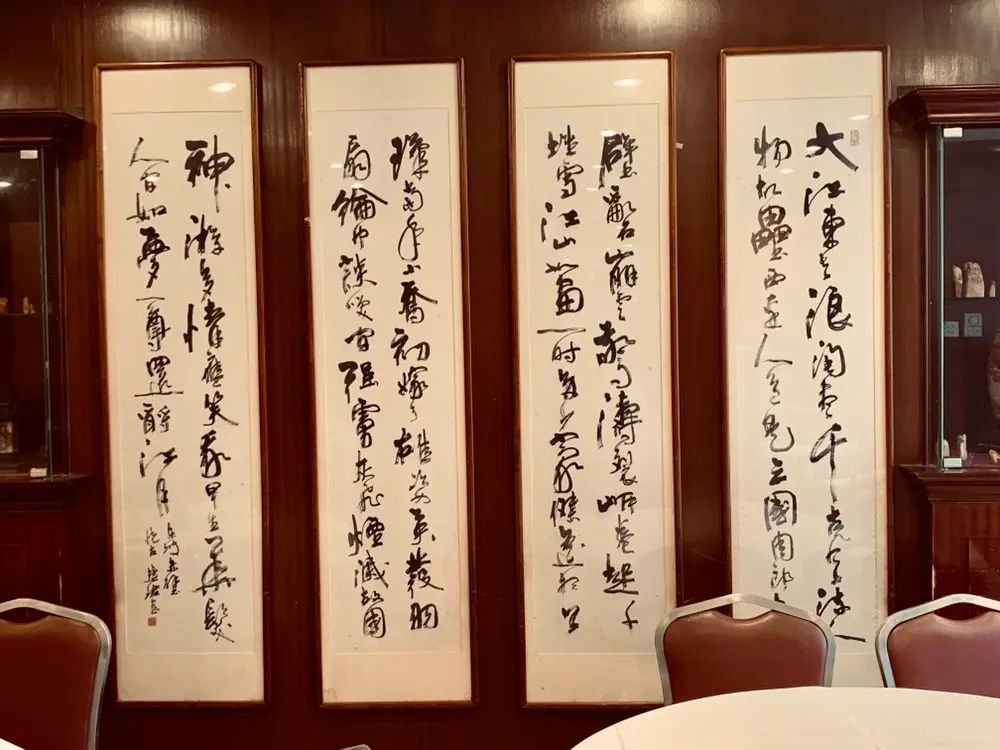 大江東去浪淘盡千古風流人
物故壘西邊人道是三國周郎
壁亂石崩雲驚濤裂岸卷起千
堆雪江山如畫一時多少豪傑遙想公
瑾當年小喬初嫁了雄姿英發羽
扇綸巾談笑間強虜灰飛煙滅故國
神游多情應笑我早生華髮
人間如夢一尊還酹江月
東坡赤壁
懷古